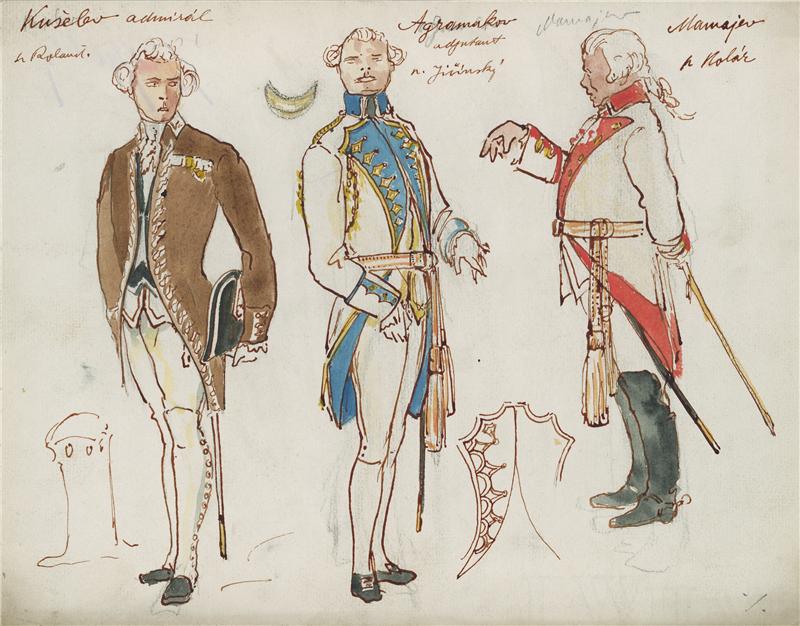 Kušelev admirál
n Roland.
Agramakov
adjutant
n. Jičínský
Mamajev
Mamajev
n Kolár